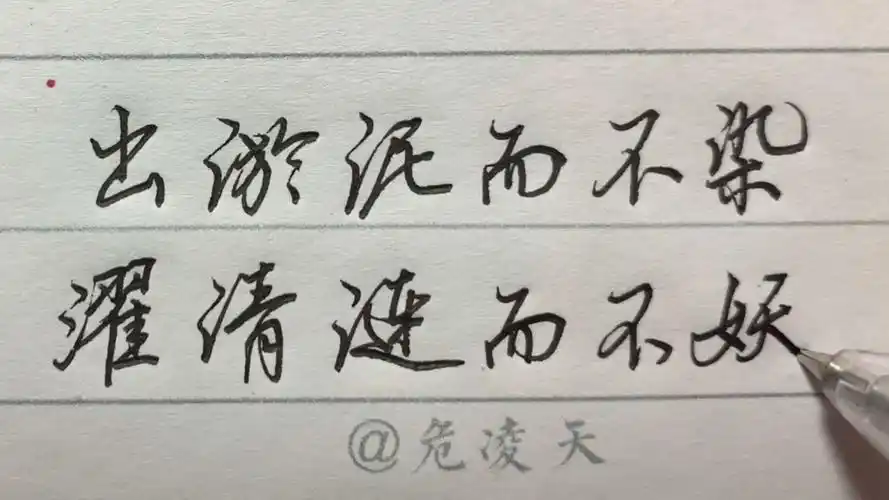 出淤泥而不染
濯清涟而不妖
@危凌天